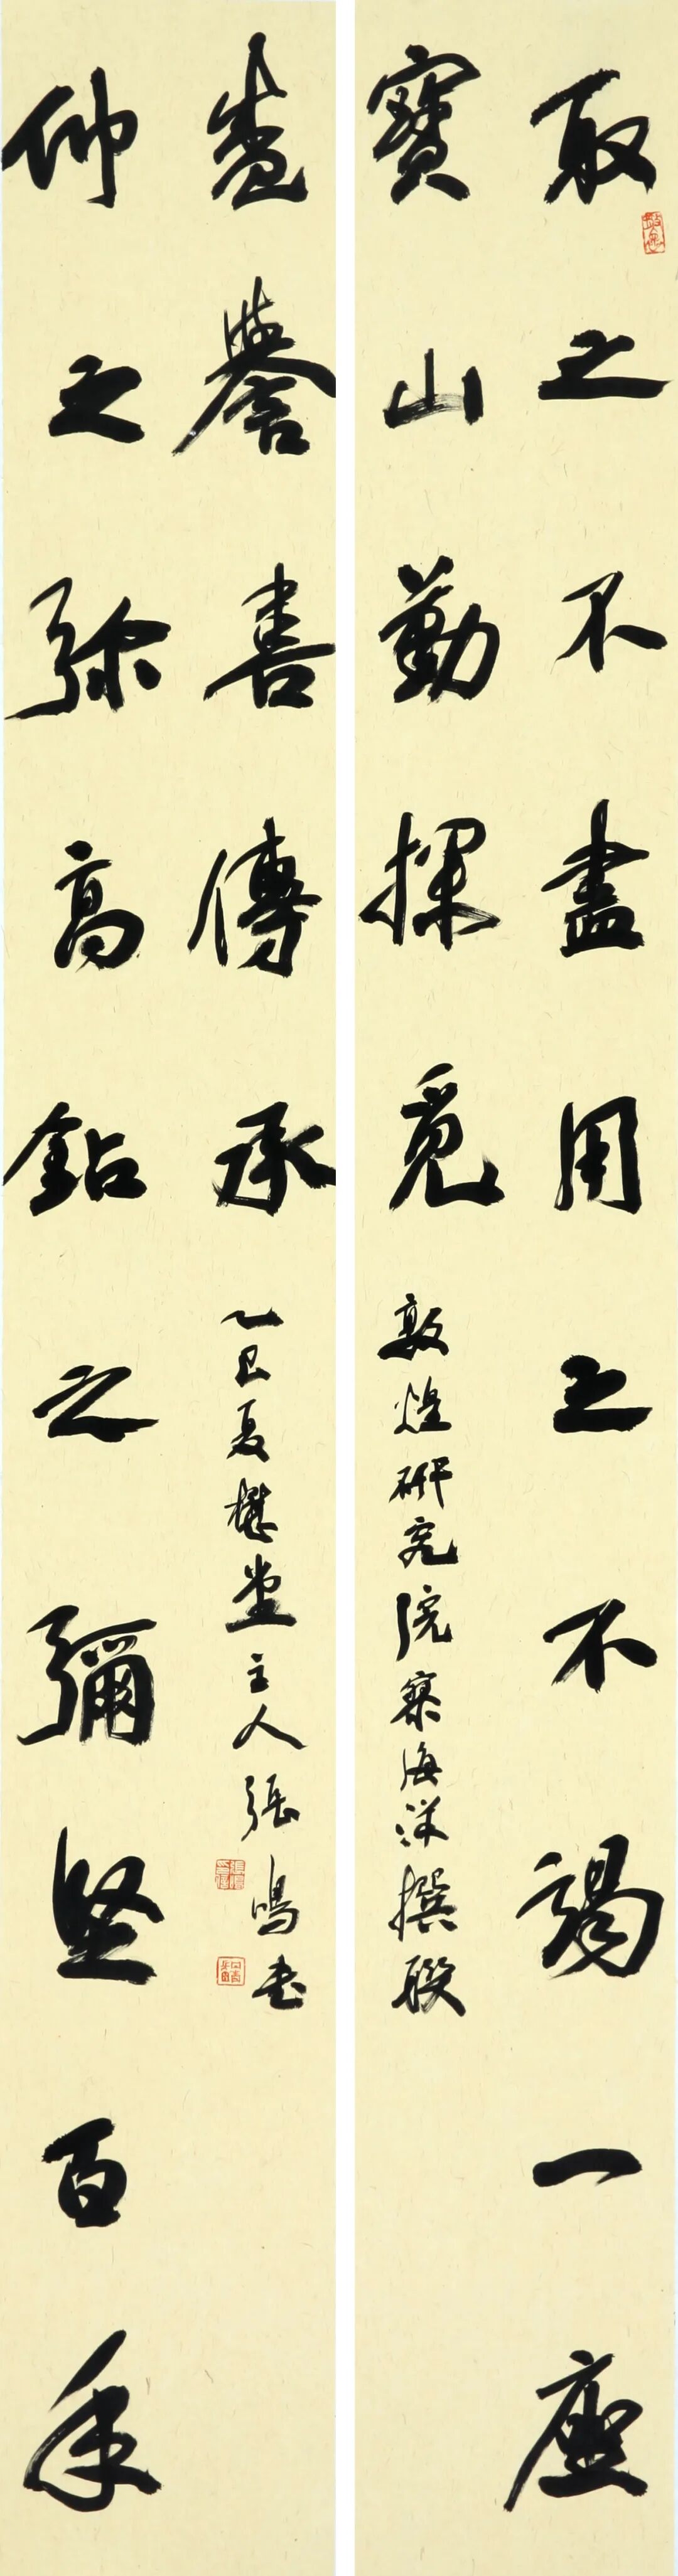 取之不盡用之不竭一座
寶山勤探覓
敦煌研究院海洋撰聯
仰之弥高鉆之彌堅百年
譽善傳承
乙巳夏堂主人張鳴書